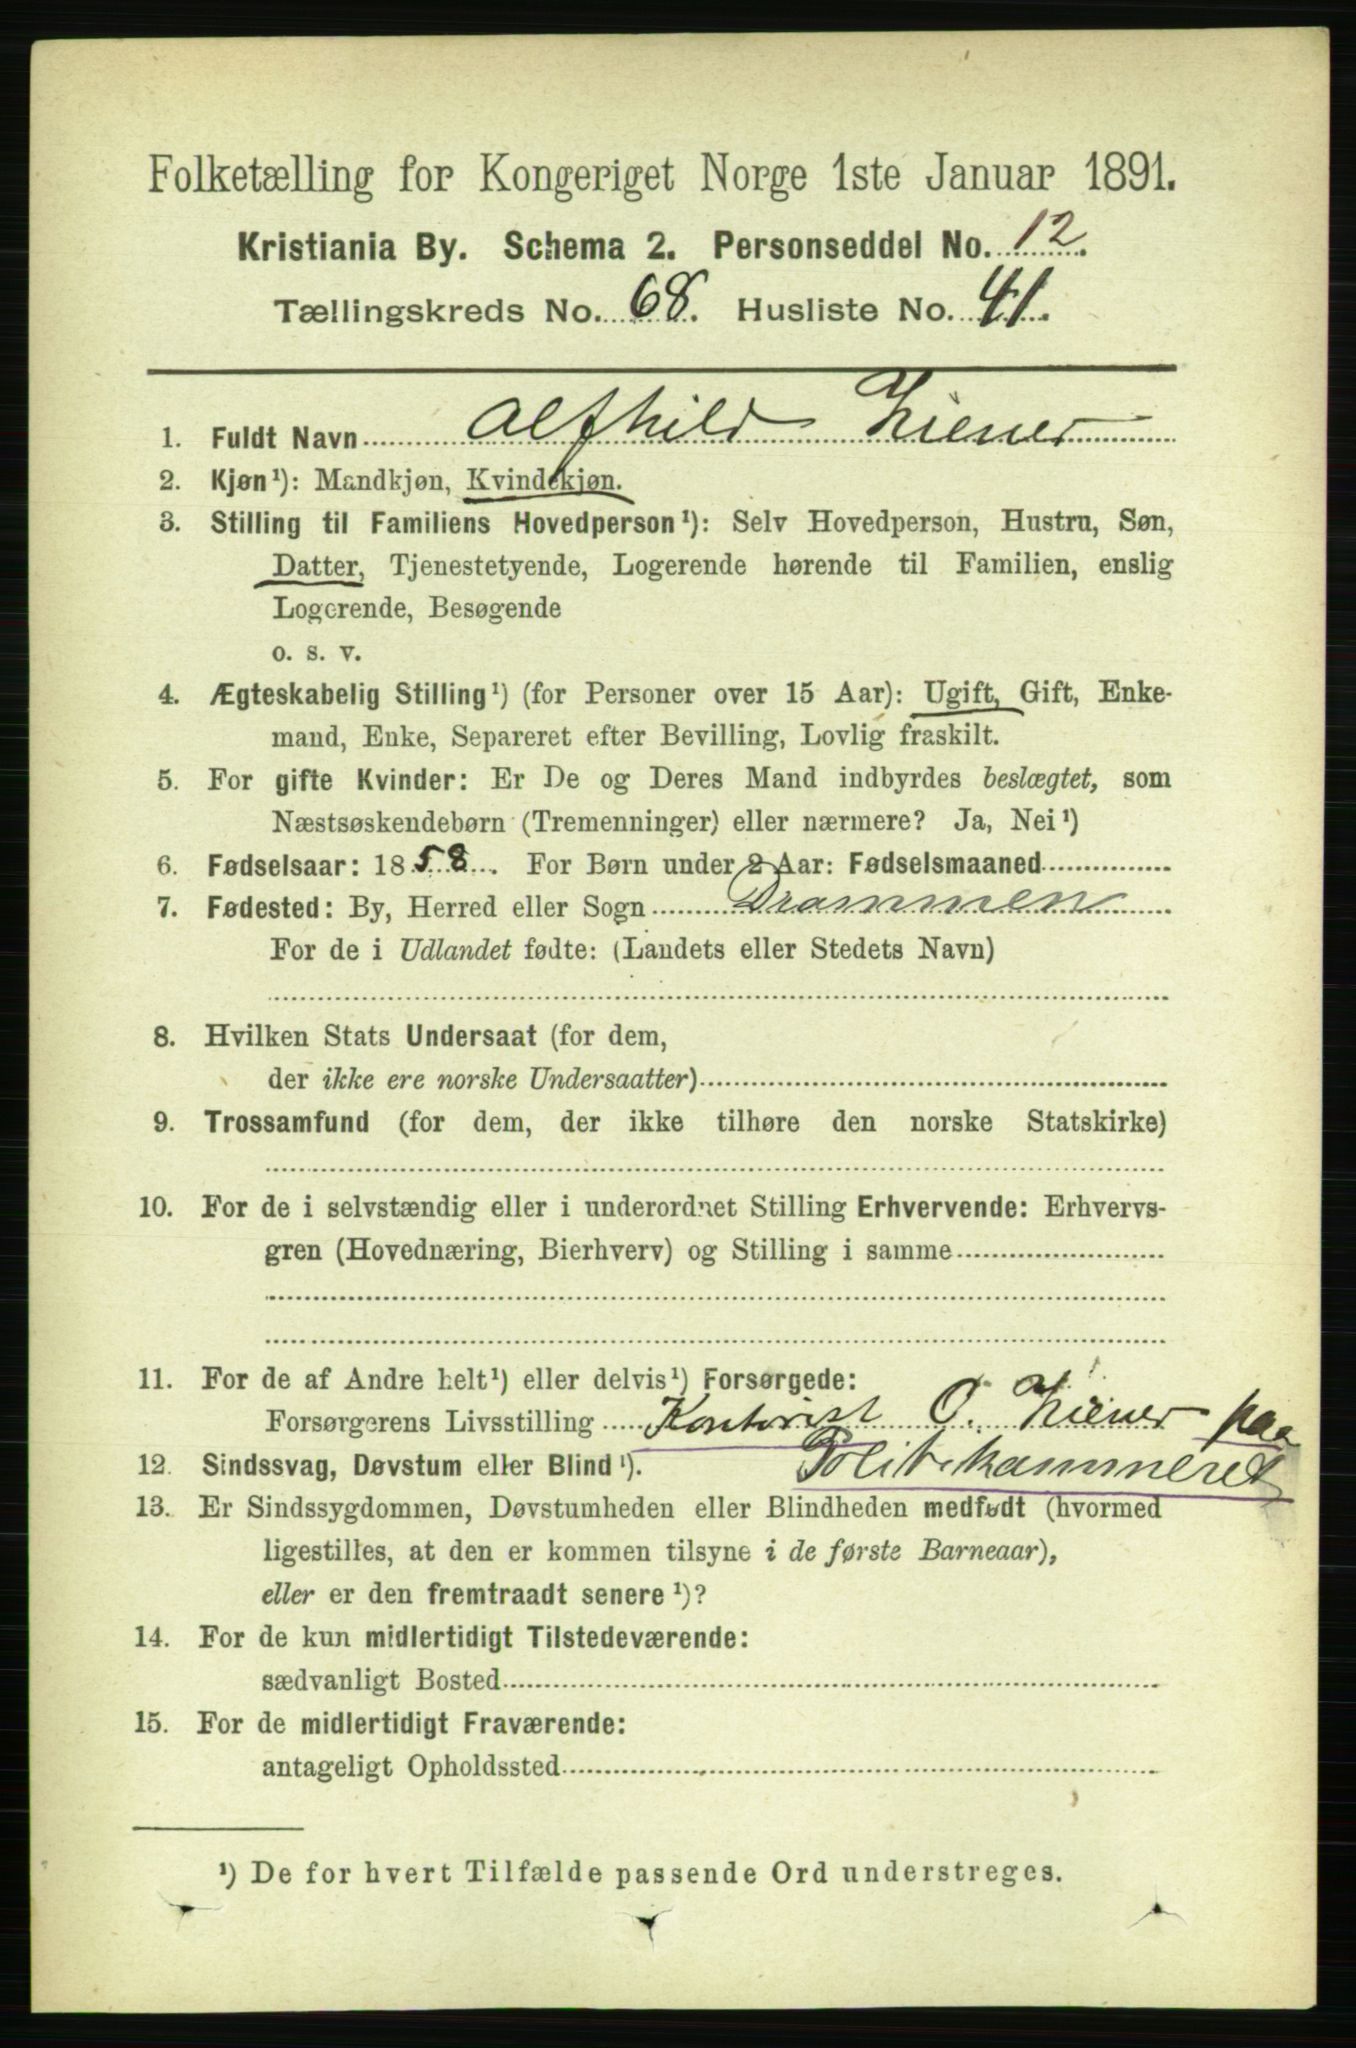 Folketælling for Kongeriget Norge 1ste Januar 1891.
Kristiania By. Schema 2. Personseddel No. 12.
Tællingskreds No. 68. Husliste No. 41.
1. Fuldt Navn Alfhild Ziener
2. Kjøn¹): Mandkjøn, Kvindekjøn.
3. Stilling til Familiens Hovedperson¹): Selv Hovedperson, Hustru, Søn,
Datter, Tjenestetyende, Logerende hørende til Familien, enslig
Logerende, Besøgende
o. s. v.
4. Ægteskabelig Stilling¹) (for Personer over 15 Aar): Ugift, Gift, Enke-
mand, Enke, Separeret efter Bevilling, Lovlig fraskilt.
5. For gifte Kvinder: Er De og Deres Mand indbyrdes beslægtet, som
Næstsøskendebørn (Tremenninger) eller nærmere? Ja, Nei¹)
6. Fødselsaar: 1858. For Børn under 2 Aar: Fødselsmaaned
7. Fødested: By, Herred eller Sogn Drammen
For de i Udlandet fødte: (Landets eller Stedets Navn)
8. Hvilken Stats Undersaat (for dem,
der ikke ere norske Undersaatter)
9. Trossamfund (for dem, der ikke tilhøre den norske Statskirke)
10. For de i selvstændig eller i underordnet Stilling Erhvervende: Erhvervs-
gren (Hovednæring, Bierhverv) og Stilling i samme
11. For de af Andre helt¹) eller delvis¹) Forsørgede:
Forsørgerens Livsstilling Kontorist O. Ziener paa
12. Sindssvag, Døvstum eller Blind¹). Politikammeret
13. Er Sindssygdommen, Døvstumheden eller Blindheden medfødt (hvormed
ligestilles, at den er kommen tilsyne i de første Barneaar),
eller er den fremtraadt senere¹)?
14. For de kun midlertidigt Tilstedeværende:
sædvanligt Bosted
15. For de midlertidigt Fraværende:
antageligt Opholdssted
¹) De for hvert Tilfælde passende Ord understreges.